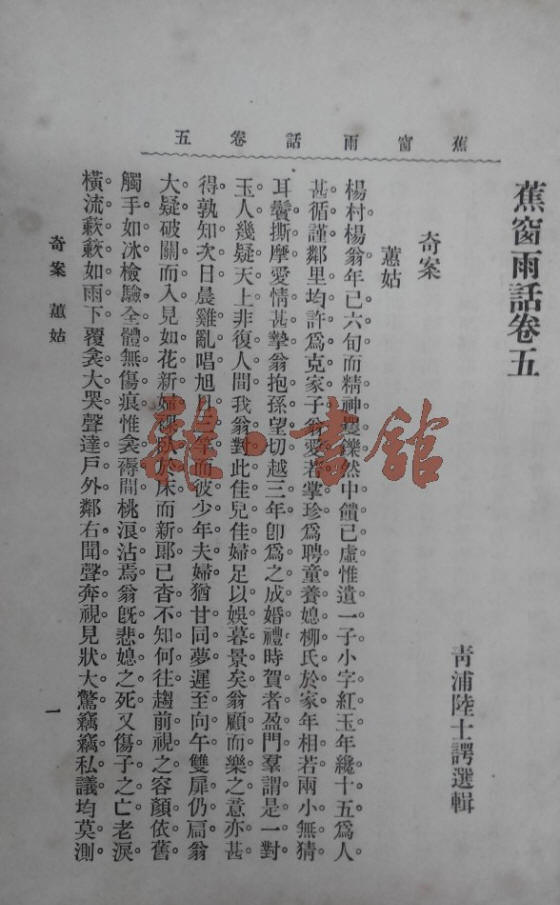 蕉窗雨話卷五
蕉窗雨話卷五
青浦陸士諤選輯
奇案
蕙姑
楊村楊翁年已六旬而精神矍鑠然中饋已虛惟遺一子小字紅玉年纔十五爲人
甚循謹鄰里均許爲克家子翁愛若掌珍爲聘童養媳柳氏於家年相若兩小無猜
耳鬢撕摩愛情甚摯翁抱孫望切越三年卽爲之成婚禮時賀者盈門羣謂是一對
玉人幾疑天上非復人間我翁對此佳兒佳婦足以娛暮景矣翁顧而樂之意亦甚
得孰知次日晨雞亂唱旭日三竿而彼少年夫婦猶甘同夢遲至向午雙扉仍扃翁
大疑破關而入見如花新婦臥於床而新郎已杳不知何往趨前視之容顏依舊
觸手如冰檢驗全體無傷痕惟衾褥間桃浪沾焉翁旣悲媳之死又傷子之亡老淚
橫流簌簌如雨下覆衾大哭聲達戶外鄰右聞聲奔視見狀大驚竊竊私議均莫測
奇案 蕙姑
一
雜·書館